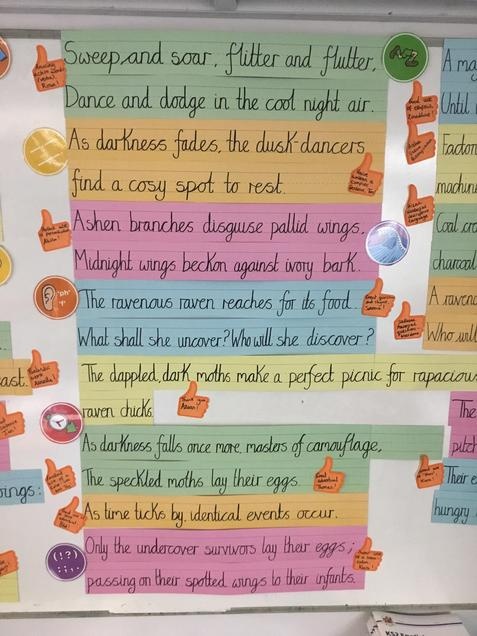 Sweep and soar, flitter and flutter,
Dance and dodge in the cool night air.
As darkness fades, the dusk-dancers
find a cosy spot to rest.
Ashen branches disguise pallid wings.
Midnight wings beckon against ivory bark.
The ravenous raven reaches for its food.
What shall she uncover? Who will she discover?
The dappled, dark moths make a perfect picnic for rapacious
raven chicks.
As darkness falls once more, masters of camouflage,
The speckled moths lay their eggs.
As time ticks by, identical events occur.
Only the undercover survivors lay their eggs;
passing on their spotted wings to their infants.
AZ
(!?)
:,;.
Thank you
A ma
Until
Factor
machin
Coal
charcoal
A raven
Who will
The
pitch
Their e
hungry
east.
ings: